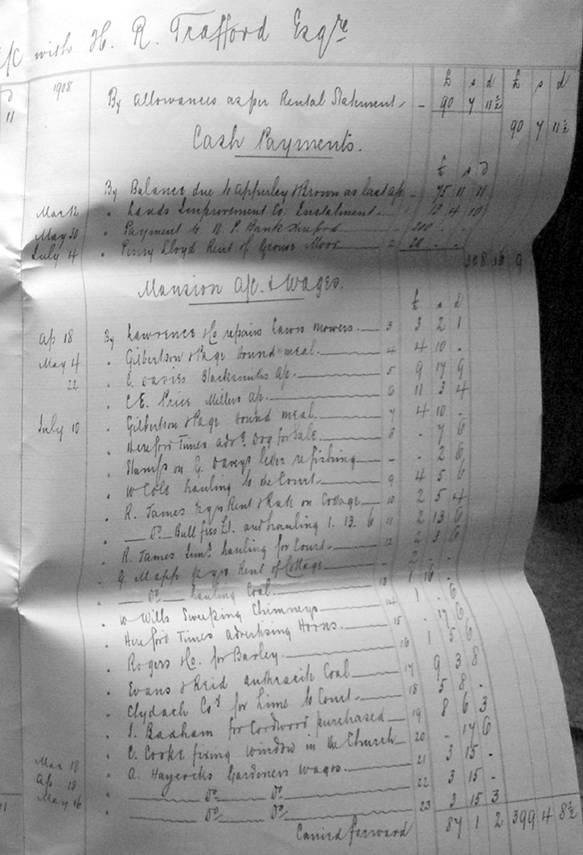 a/c with H. R. Trafford Esqre
1908
£ s d £ s d
11 By Allowances as per Rental Statment - 90 7 11½
90 7 11½
Cash Payments.
£ s d
By Balance due to Apperley & Brown as last a/c 75 11 11
Mar 12 " Lands Improvement Co. Instalment 1 13 4 10
May 20 " Payment to N. P. Bank Hereford 200 - -
July 4 " Percy Lloyd Rent of Grouse Moor 2 20 - -
308 16 9
Mansion A/c. & Wages.
£ s d
Ap 18 By Lawrence & Co repairs Lawn Mowers 3 3 2 1
May 4 " Gilbertson & Page hound meal. 4 4 10 -
22 " E. Davies Blacksmiths A/c. 5 9 17 9
" C. E. Price Millers A/c. 6 11 3 4
July 10 " Gilbertson & Page hound meal. 7 4 10 -
" Hereford Times advt. Dog for Sale 8 - 7 6
" Stamps on G. Daveys letter re fishing - - 2 6
" W Cole hauling to the Court 9 4 5 6
" R. James Rent & Rate on Cottage 10 2 5 4
" Do Bull fees £1. and hauling 1. 13. 6 11 2 13 6
" R. James hauling for Court 12 2 3 6
" G. Mapp Rent of Cottage 2 - -
" Do hauling Coal 13 1 16 -
" W Wills Sweeping Chimneys 14 1 - 6
" Hereford Times advertising Horns. 15 - 17 6
" Rogers & Co. for Barley 16 1 5 6
" Evans & Reid anthracite Coal 17 9 3 8
" Clydach Coy for Lime to Court 18 5 8 -
" J. Badham for Cordwood purchased 19 8 6 3
" C. Cooke fixing window in the Church 20 - 17 6
Mar 18 " A. Haycocks Gardeners Wages 21 3 15 -
Ap 18 " Do Do 22 3 15 -
May 16 " Do Do 23 3 15 3
Carried forward 87 1 2 399 4 8½